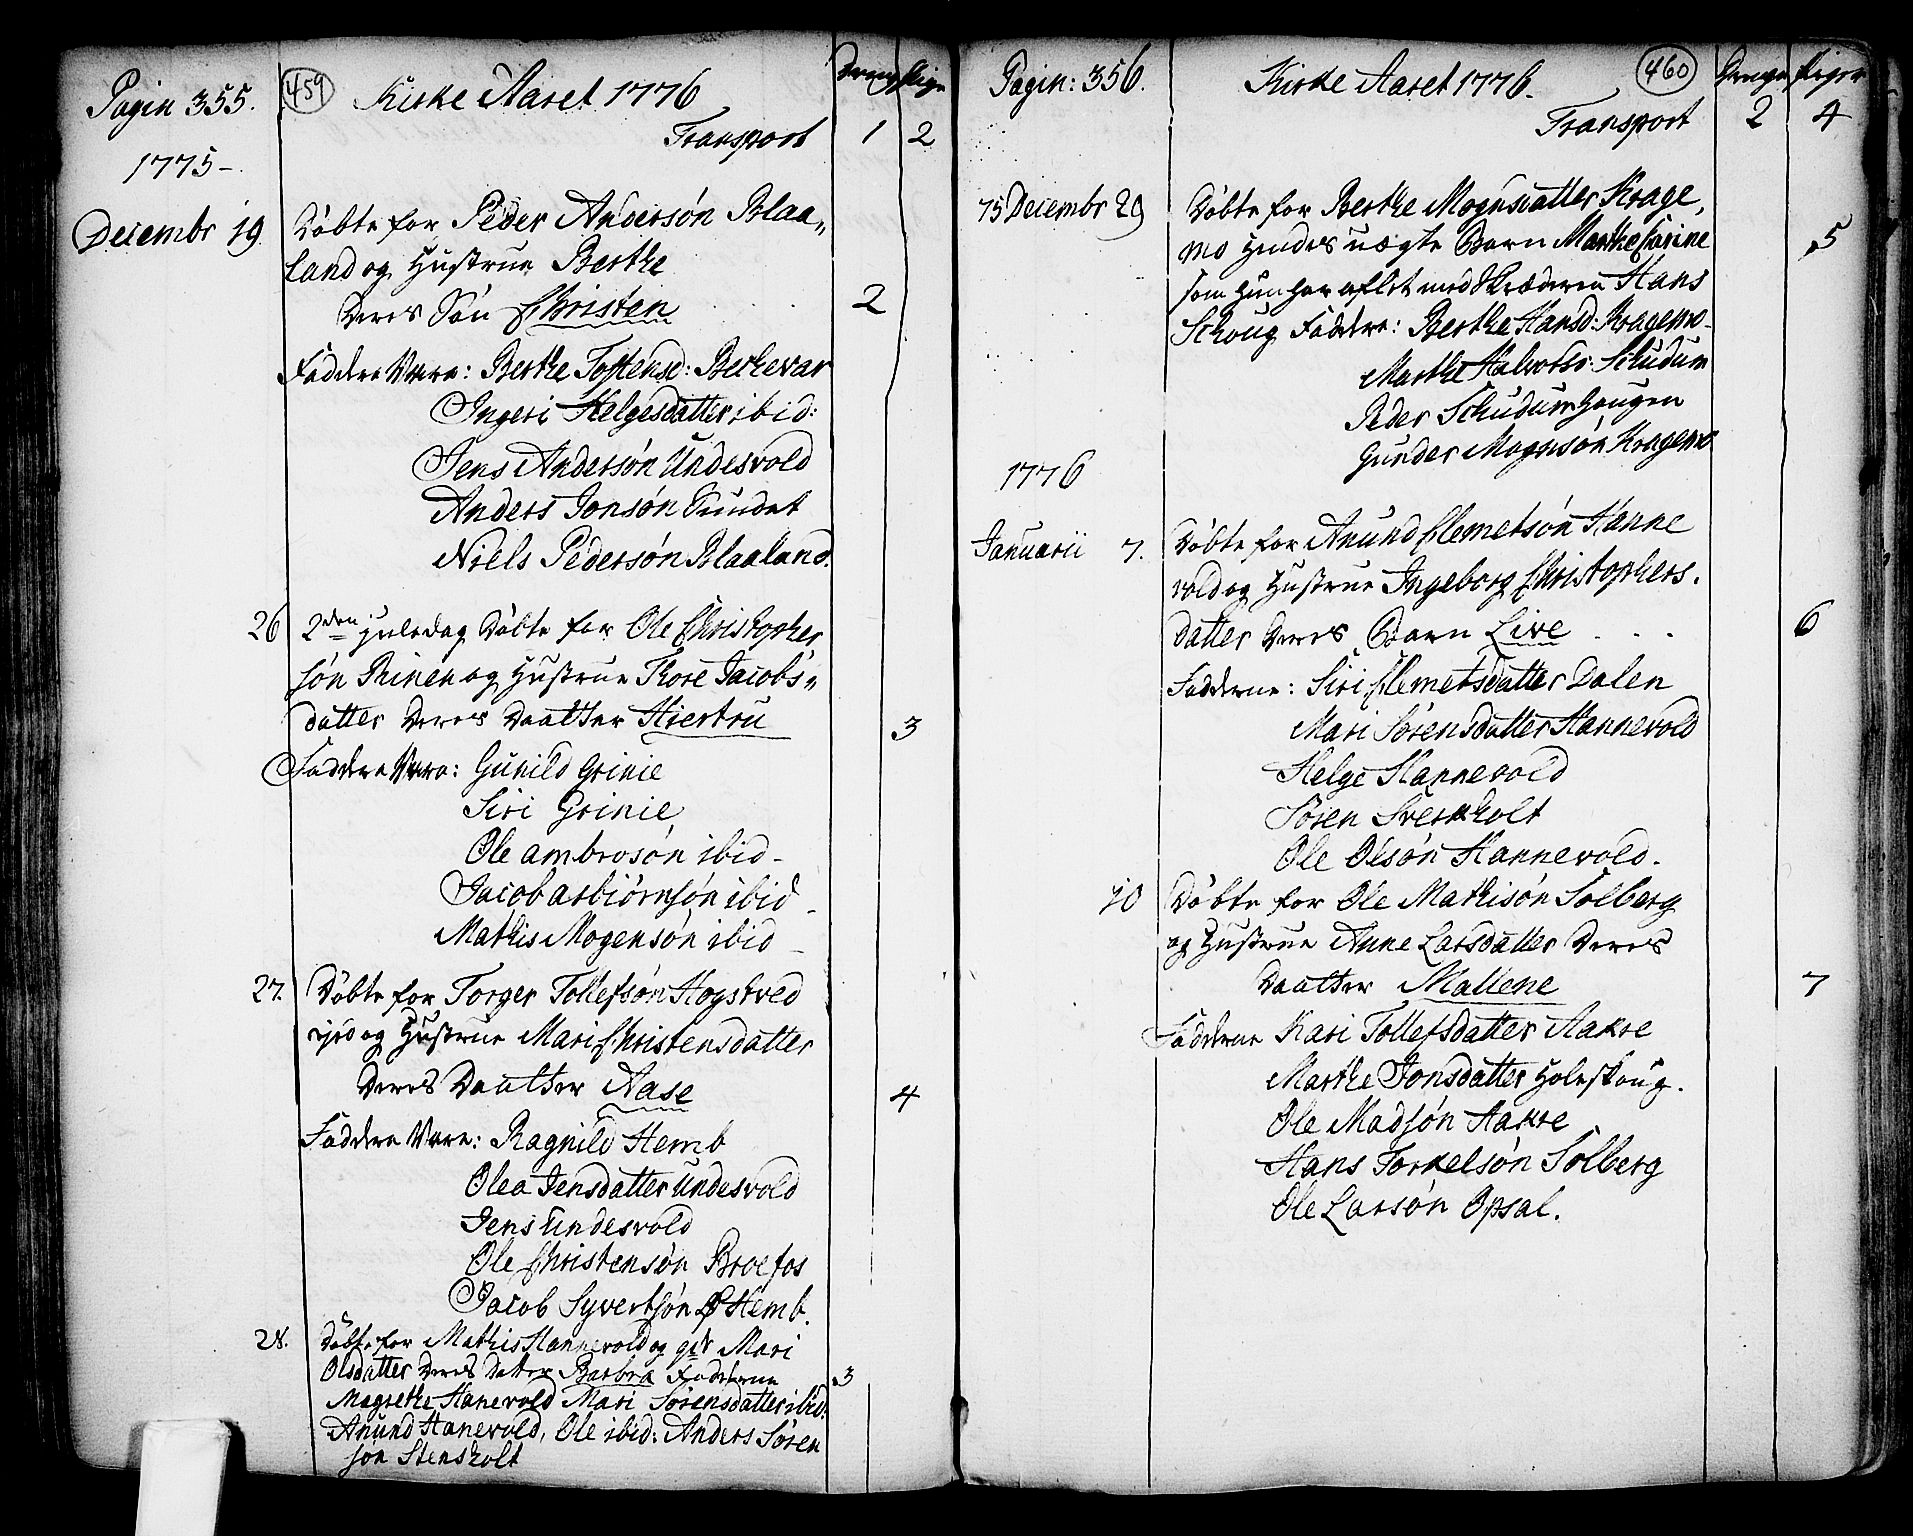 Pagin 355. 459 Kirke Aaret 1776 Drenge Piger
Transport 1 2
1775-
Decembr 19. Døbte for Peder Andersøn Blaa„
land og Hustrue Berthe
Deres Søn Christen 2
Faddere Vare: Berthe Tostensd: Bechevar
Ingeri Helgesdatter ibid:
Jens Andersøn Undesvold
Anders Jonsøn Sundet
Niels Pedersøn Blaaland.
26 2den Juledag Døbte for Ole Christopher
søn Rinen og Hustrue Thore Jacobs„
datter Deres Daatter Hiertru 3
Faddere Vare: Gunild Grinie
Siri Grinie
Ole ambrosøn ibid-
Jacob asbiørnsøn ibid -
Mathis Mogensøn ibid -
27. Døbte for Torger Tollefsøn Hogstved
ejed og Hustrue Mari Christensdatter
Deres Daatter Aase 4
Faddere Vare: Ragnild Hemb
Olea Jensdatter Undesvold
Jens Undesvold
Ole Christensøn Broefos
Jacob Syvertsøn Hemb.
28. Døbt for Mathis Hannevold og qvi Mari
Olsdatter Deres Datter Barbra Fadderne 3
Magrethe Hanevold Mari Sørensdatter ibid:
Anund Hanevold, Ole ibid: Anders Søren
søn Stensholt
Pagin: 356. Kirke Aaret 1776. 460 Drenge Piger
Transport 2 4
75 Decembr 29 Døbte for Berthe Mognsdatter Krage,
mo hendes uægte Barn Marthe Carine 5
som hun har aflet med Skræderen Hans
Schoug Faddere: Berthe Hansd: Kragemo-
Marthe Halvorsd: Schudum
Peder Schudumhaugen
Gunder Mognsøn Kragemo
1776
Januarii 7. Døbte for Anund Clemetsøn Hanne
vold og Hustrue Ingeborg Christophers.
datter Deres Barn Live 6
Fadderne: Siri Clemetsdatter Dalen
Mari Sørensdatter Hannevold
Helge Hannevold
Søren Sverkholt
Ole Olsøn Hannevold.
10 Døbte for Ole Mathisøn Solberg
og Hustrue Anne Larsdatter Deres
Daatter Mallene 7
Fadderne Kari Tollefsdatter Aakre
Marthe Jonsdatter Holeskoug.
Ole Madsøn Aakre
Hans Torkelsøn Solberg
Ole Larsøn Opsal.